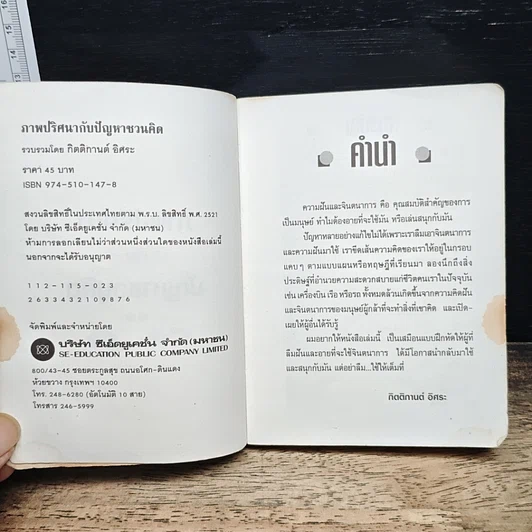 ภาพปริศนากับปัญหาชวนคิด
รวบรวมโดย กิตติกานต์ อิศระ
ราคา 45 บาท
ISBN 974-510-147-8
สงวนลิขสิทธิ์ในประเทศไทยตาม พ.ร.บ. ลิขสิทธิ์ พ.ศ. 2521
โดย บริษัท ซีเอ็ดยูเคชั่น จำกัด (มหาชน)
ห้ามการลอกเลียนไม่ว่าส่วนหนึ่งส่วนใดของหนังสือเล่มนี้
นอกจากจะได้รับอนุญาต
112-115-023
2633432109876
จัดพิมพ์และจำหน่ายโดย
บริษัท ซีเอ็ดยูเคชั่น จำกัด (มหาชน)
SE-EDUCATION PUBLIC COMPANY LIMITED
800/43-45 ซอยตระกูลสุข ถนนอโศก-ดินแดง
ห้วยขวาง กรุงเทพฯ 10400
โทร. 248-6280 (อัตโนมัติ 10 สาย)
โทรสาร 246-5999
คำนำ
ความฝันและจินตนาการ คือ คุณสมบัติสำคัญของการ
เป็นมนุษย์ ทำไมต้องอายที่จะใช้มัน หรือเล่นสนุกกับมัน
ปัญหาหลายอย่างแก้ไขไม่ได้เพราะเราลืมเอาจินตนาการ
และความฝันมาใช้ เราขีดเส้นความคิดของเราให้อยู่ในกรอบ
แคบๆ ตามแบบแผนหรือทฤษฎีที่เรียนมา ลองนึกถึงสิ่ง
ประดิษฐ์ที่อำนวยความสะดวกสบายแก่ชีวิตคนเราในปัจจุบัน
เช่น เครื่องบิน เรือ หรือรถ ทั้งหมดล้วนเกิดขึ้นจากความคิดฝัน
และจินตนาการของมนุษย์ผู้กล้าที่จะทำสิ่งที่เขาคิด และเปิด-
เผยให้ผู้อื่นได้รับรู้
ผมอยากให้หนังสือเล่มนี้ เป็นเสมือนแบบฝึกหัดให้ผู้ที่
ลืมฝันและอายที่จะใช้จินตนาการ ได้มีโอกาสนำกลับมาใช้
และสนุกกับมัน แต่อย่าลืม...ใช้ให้เต็มที่
กิตติกานต์ อิศระ
13
15
16